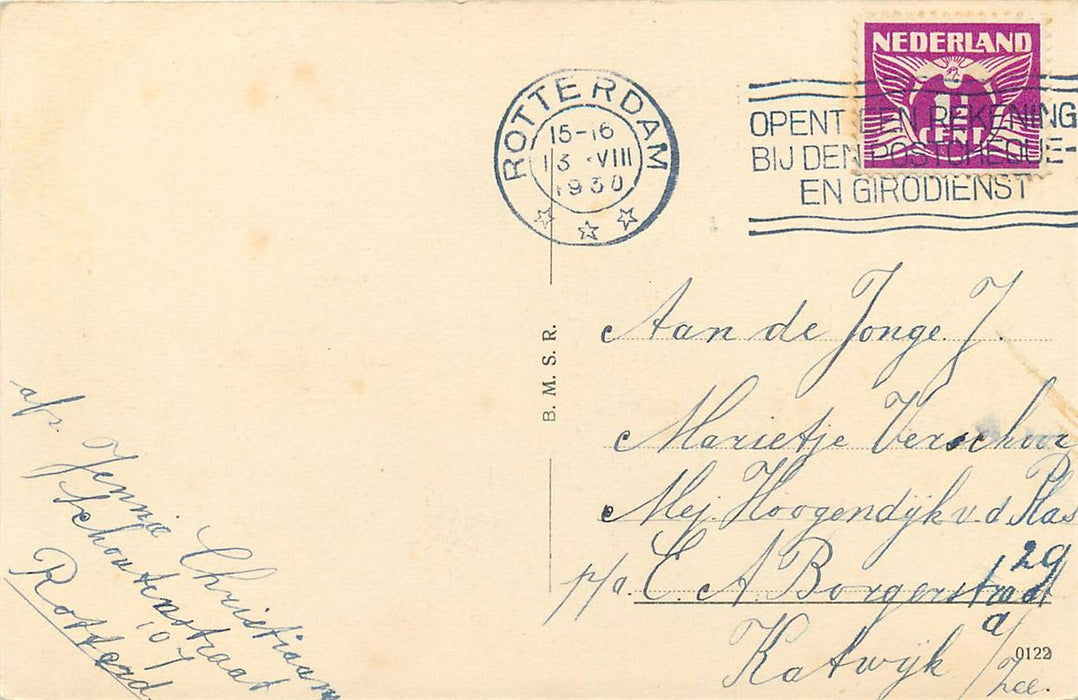 NEDERLAND
1½
CENT
ROTTERDAM
15-16
13 VIII
1930
OPENT EEN REKENING
BIJ DEN POSTCHEQUE-
EN GIRODIENST
B. M. S. R.
Aan de Jonge J.
Marietje Verschoor
Mej. Hoogendijk v.d Plas
p/a. E. A. Borgerstraat
29
a/
Katwijk Zee.
0122
afz. Jennie Christiaan
Schoutenstraat
107
Rotterd.